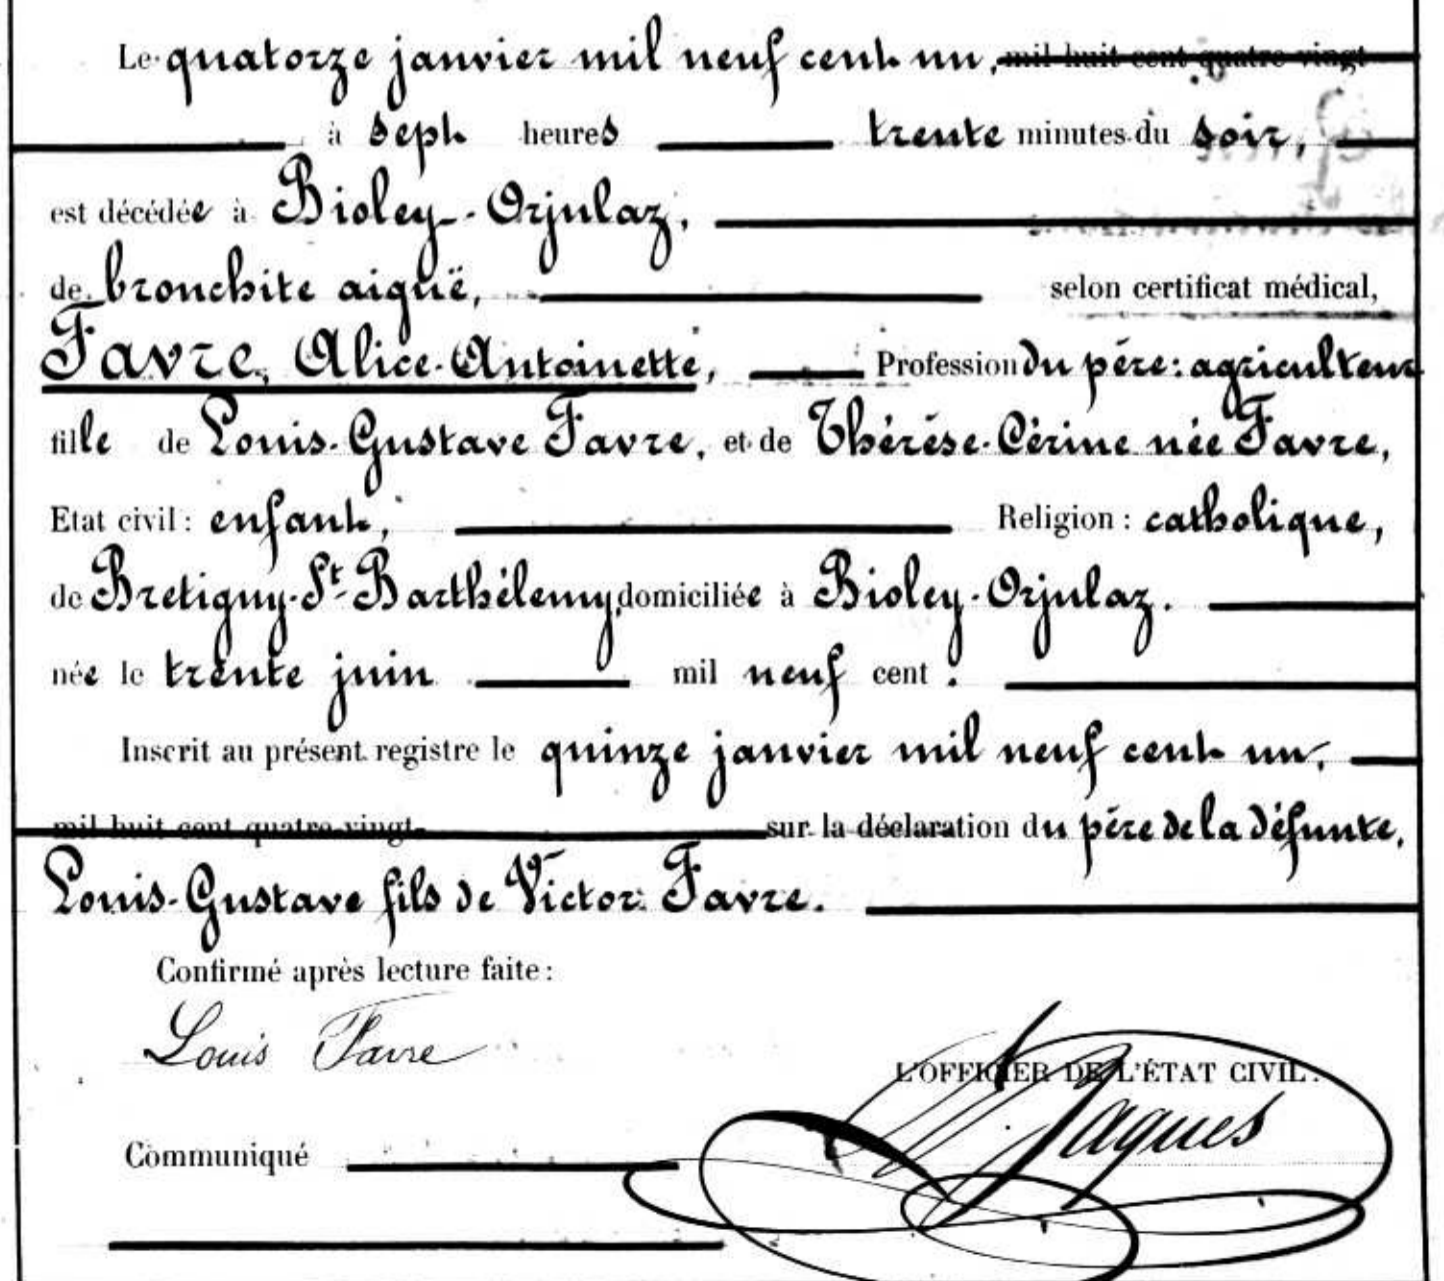 Le quatorze janvier mil neuf cent un, mil huit cent quatre vingt
à sept heures trente minutes du soir,
est décédée à Bioley-Orjulaz,
de bronchite aiguë, selon certificat médical,
Favre, Alice-Antoinette, Profession du père: agriculteur
fille de Louis-Gustave Favre, et de Thérèse-Cérine née Favre,
Etat civil: enfant, Religion: catholique,
de Bretigny-St-Barthélemy, domiciliée à Bioley-Orjulaz.
née le trente juin mil neuf cent.
Inscrit au présent registre le quinze janvier mil neuf cent un,
mil huit cent quatre vingt sur la déclaration du père de la défunte,
Louis-Gustave fils de Victor Favre.
Confirmé après lecture faite:
Louis Favre
L'OFFICIER DE L'ÉTAT CIVIL:
Jaques
Communiqué